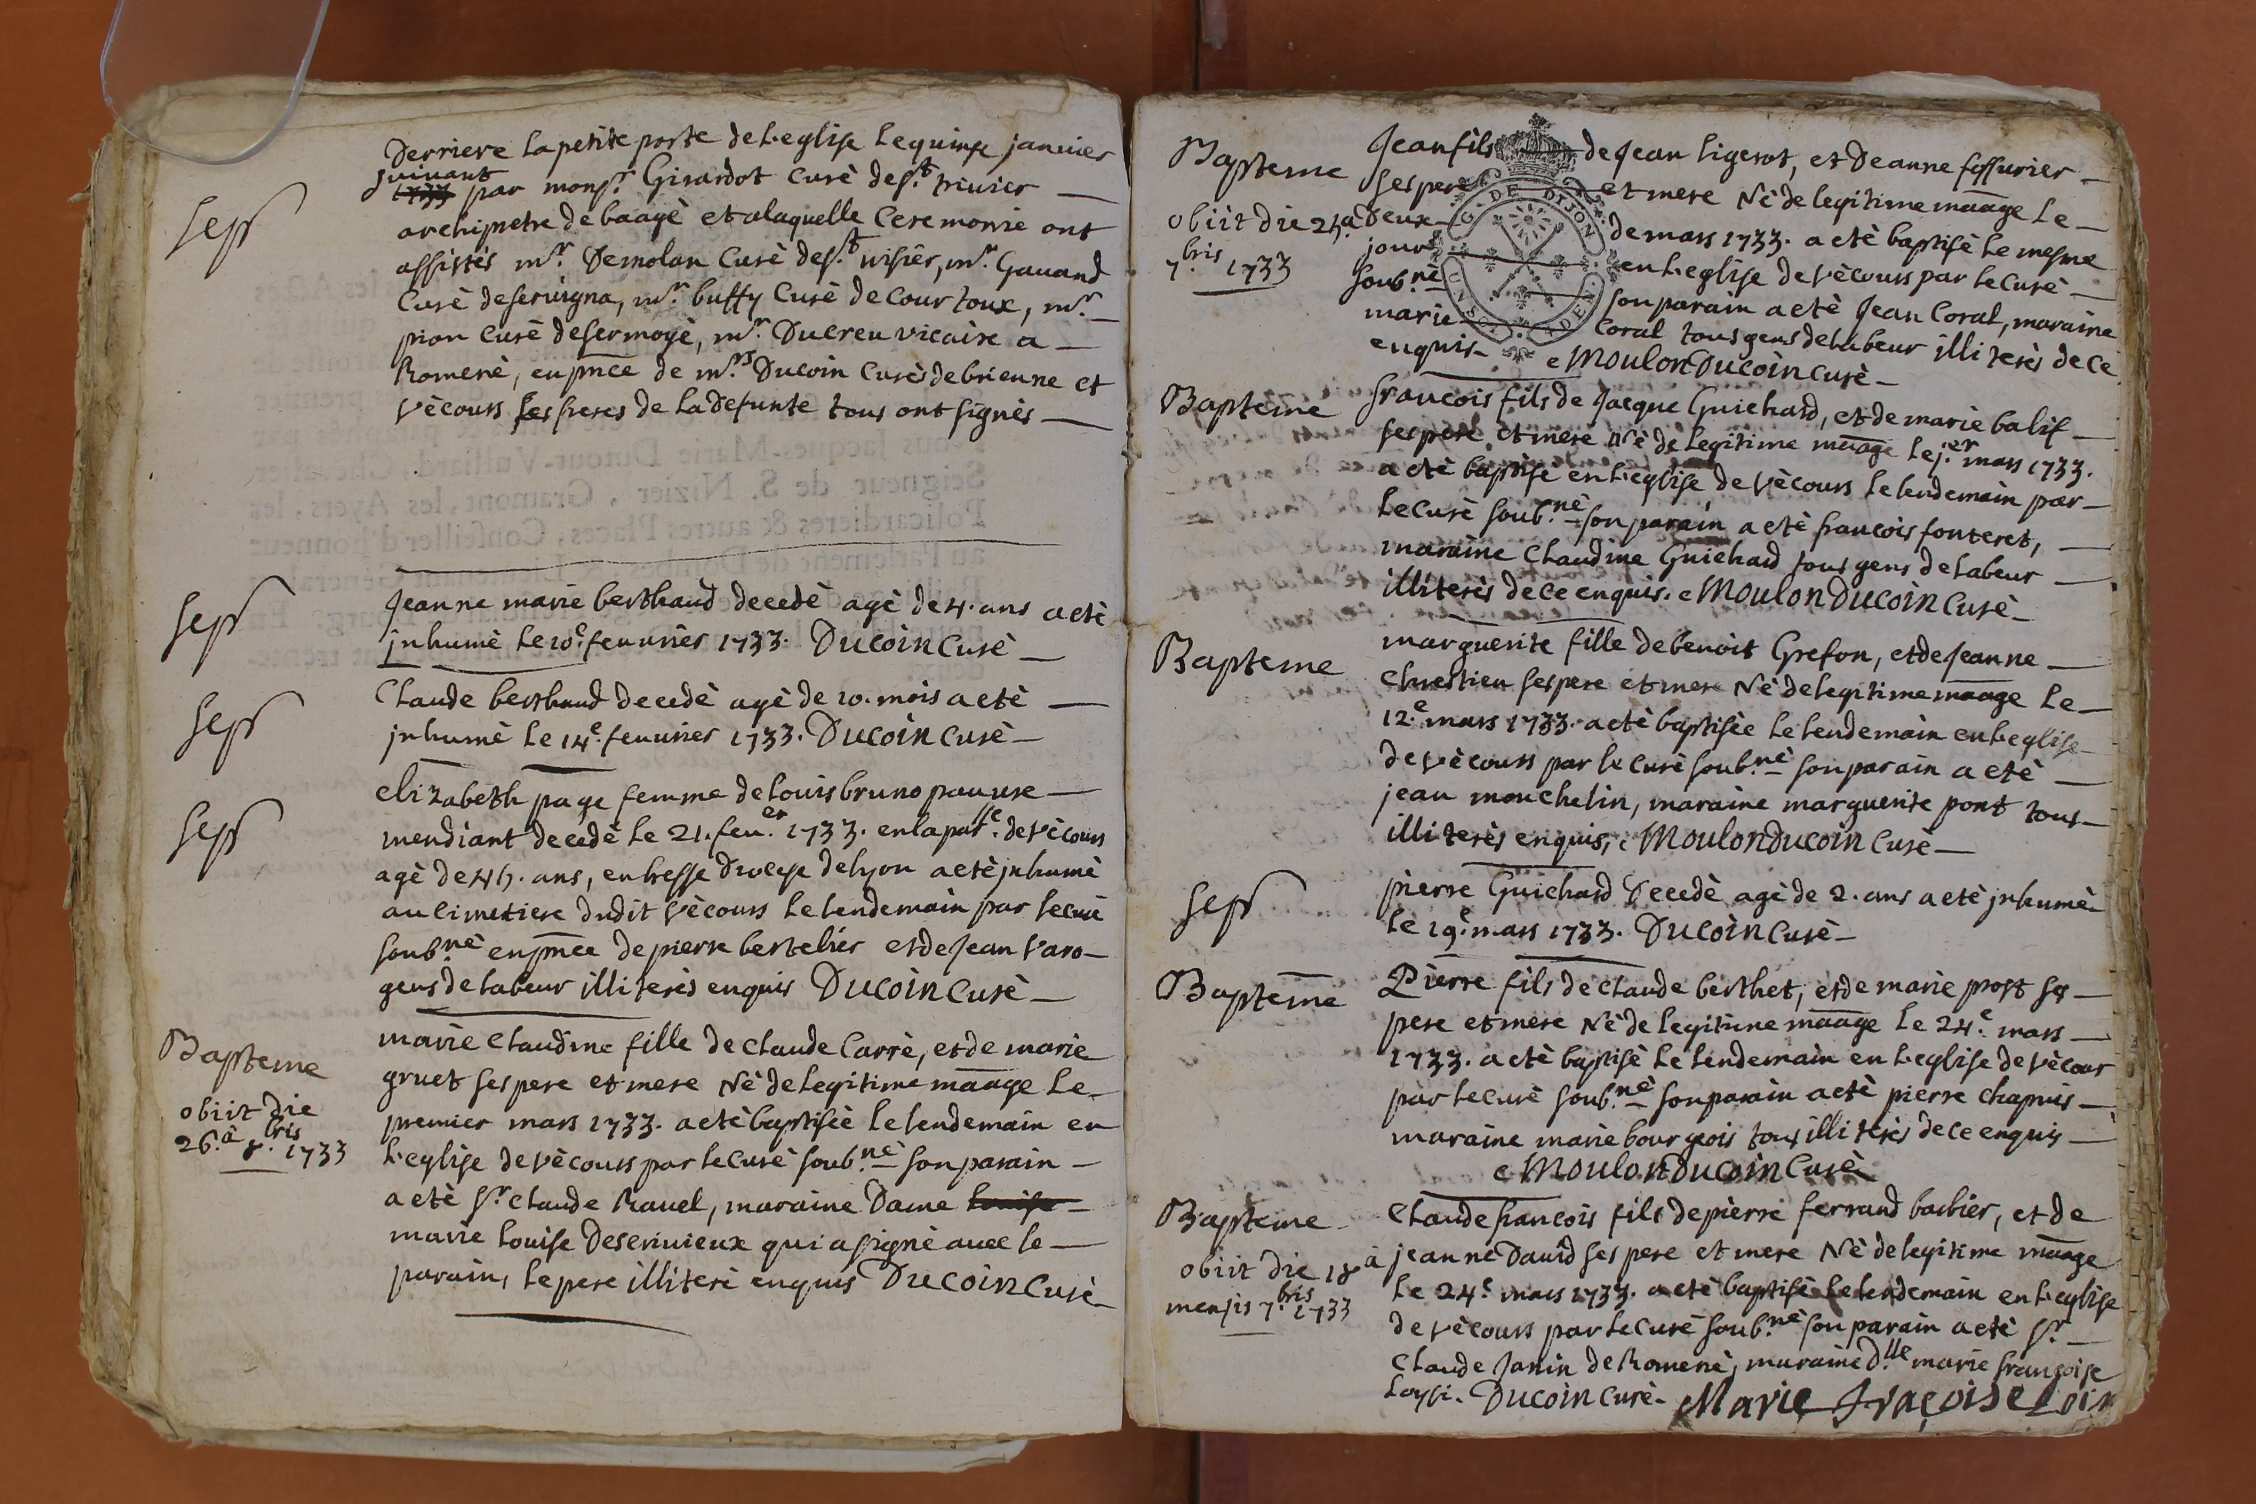 Derriere la petite porte de l'eglise le quinse januier
suiuant
1733 par monsr. Girardot curè de st. triuier
archipretre de baagè et a laquelle ceremonie ont
assistès mr. Demolan curè de st. nisiér, mr. Gauand
curè de seruigna, mr. buffy curè de courtoux, mr.
pion curè de sermoyè, mr. Ducreu vicaire a
Romenè, en pnce de mrs. Ducoin curès de brienne et
vècours les freres de la defunte tous ont signès
Sepr
Jeanne marie berthaud decedè agè de 4. ans a etè
jnhumè le 10e. feuurièr 1733. Ducoin curè
Sepr
Claude berthaud decedè agè de 10. mois a etè
jnhumè le 14e. feuurier 1733. Ducoin curè
Sepr
elizabeth page femme de louis bruno pauure
mendiant decedè le 21. feuer. 1733. en la parsse. de vècours
agè de 45. ans, en bresse diocese de lyon a etè jnhumè
au cimetiere dudit vècours le lendemain par le curè
soub.nè en pnce de pierre berteliér et de Jean varo
gens de labeur illiterès enquis Ducoin curè
Sepr
marie claudine fille de claude Carrè, et de marie
gruet ses pere et mere Nè de legitime maage le
premier mars 1733. a etè baptisèè le lendemain en
l'eglise de vècours par le curè soub.nè son parain
a etè sr. claude Ravel, maraine Dame louise
marie louise Deseruieux qui a signè auec le
parain, le pere illiterè enquis Ducoin Curè
Bapteme
obiit die
26.a 8.bris 1733
Bapteme
obiit die 25.a
7.bris 1733
Jean fils de Jean ligerot, et de anne fossurier
ses pere et mere Nè de legitime maage le
deux de mars 1733. a etè baptisè le mesme
jour en l'eglise de vècours par le curè
soub.nè son parain a etè Jean Coral, maraine
marie Coral tous gens de labeur illiterès de ce
enquis e Moulon Ducoin curè
Bapteme
francois fils de Jacque Guichard, et de marie balif
ses pere et mere Nè de legitime maage le j.er mars 1733.
a etè baptise en l'eglise de vècours le lendemain par
le curè soub.nè son parain a etè francois fonteret,
maraine claudine Guichard tous gens de labeur
illiterès de ce enquis. e Moulon Ducoin Curè
Bapteme
marguerite fille de benoit Grefon, et de Jeanne
chrestien ses pere et mere Nè de legitime maage le
12.e mars 1733. a etè baptisèe le lendemain en l'eglise
de vècours par le curè soub.nè son parain a etè
jean monchelin, maraine marguerite pont tous
illiterès enquis, e Moulon Ducoin Curè
Sepr
pierre Guichard Decedè agè de 2. ans a etè jnhumè
le 19.e mars 1733. Ducoin Curè
Bapteme
Pierre fils de claude berthet, et de marie prost ses
pere et mere Nè de legitime maage le 24.e mars
1733. a etè baptisè le lendemain en l'eglise de vècour
par le curè soub.nè son parain a etè pierre chapuis
maraine marie bourgeois tous illiterès de ce enquis
e Moulon Ducoin Curè
Bapteme
obiit die 18 a
mensis 7.bris 1733
Claude francois fils de pierre ferrand barbier, et de
jeanne David ses pere et mere Nè de legitime maage
le 24.e mars 1733. a etè baptisè le lendemain en l'eglise
de vècours par le curè soub.nè son parain a etè sr.
claude Janin de Romenè, maraine d.lle marie francoise
Loysi. Ducoin Curè. Marie Fraçoise Loisi